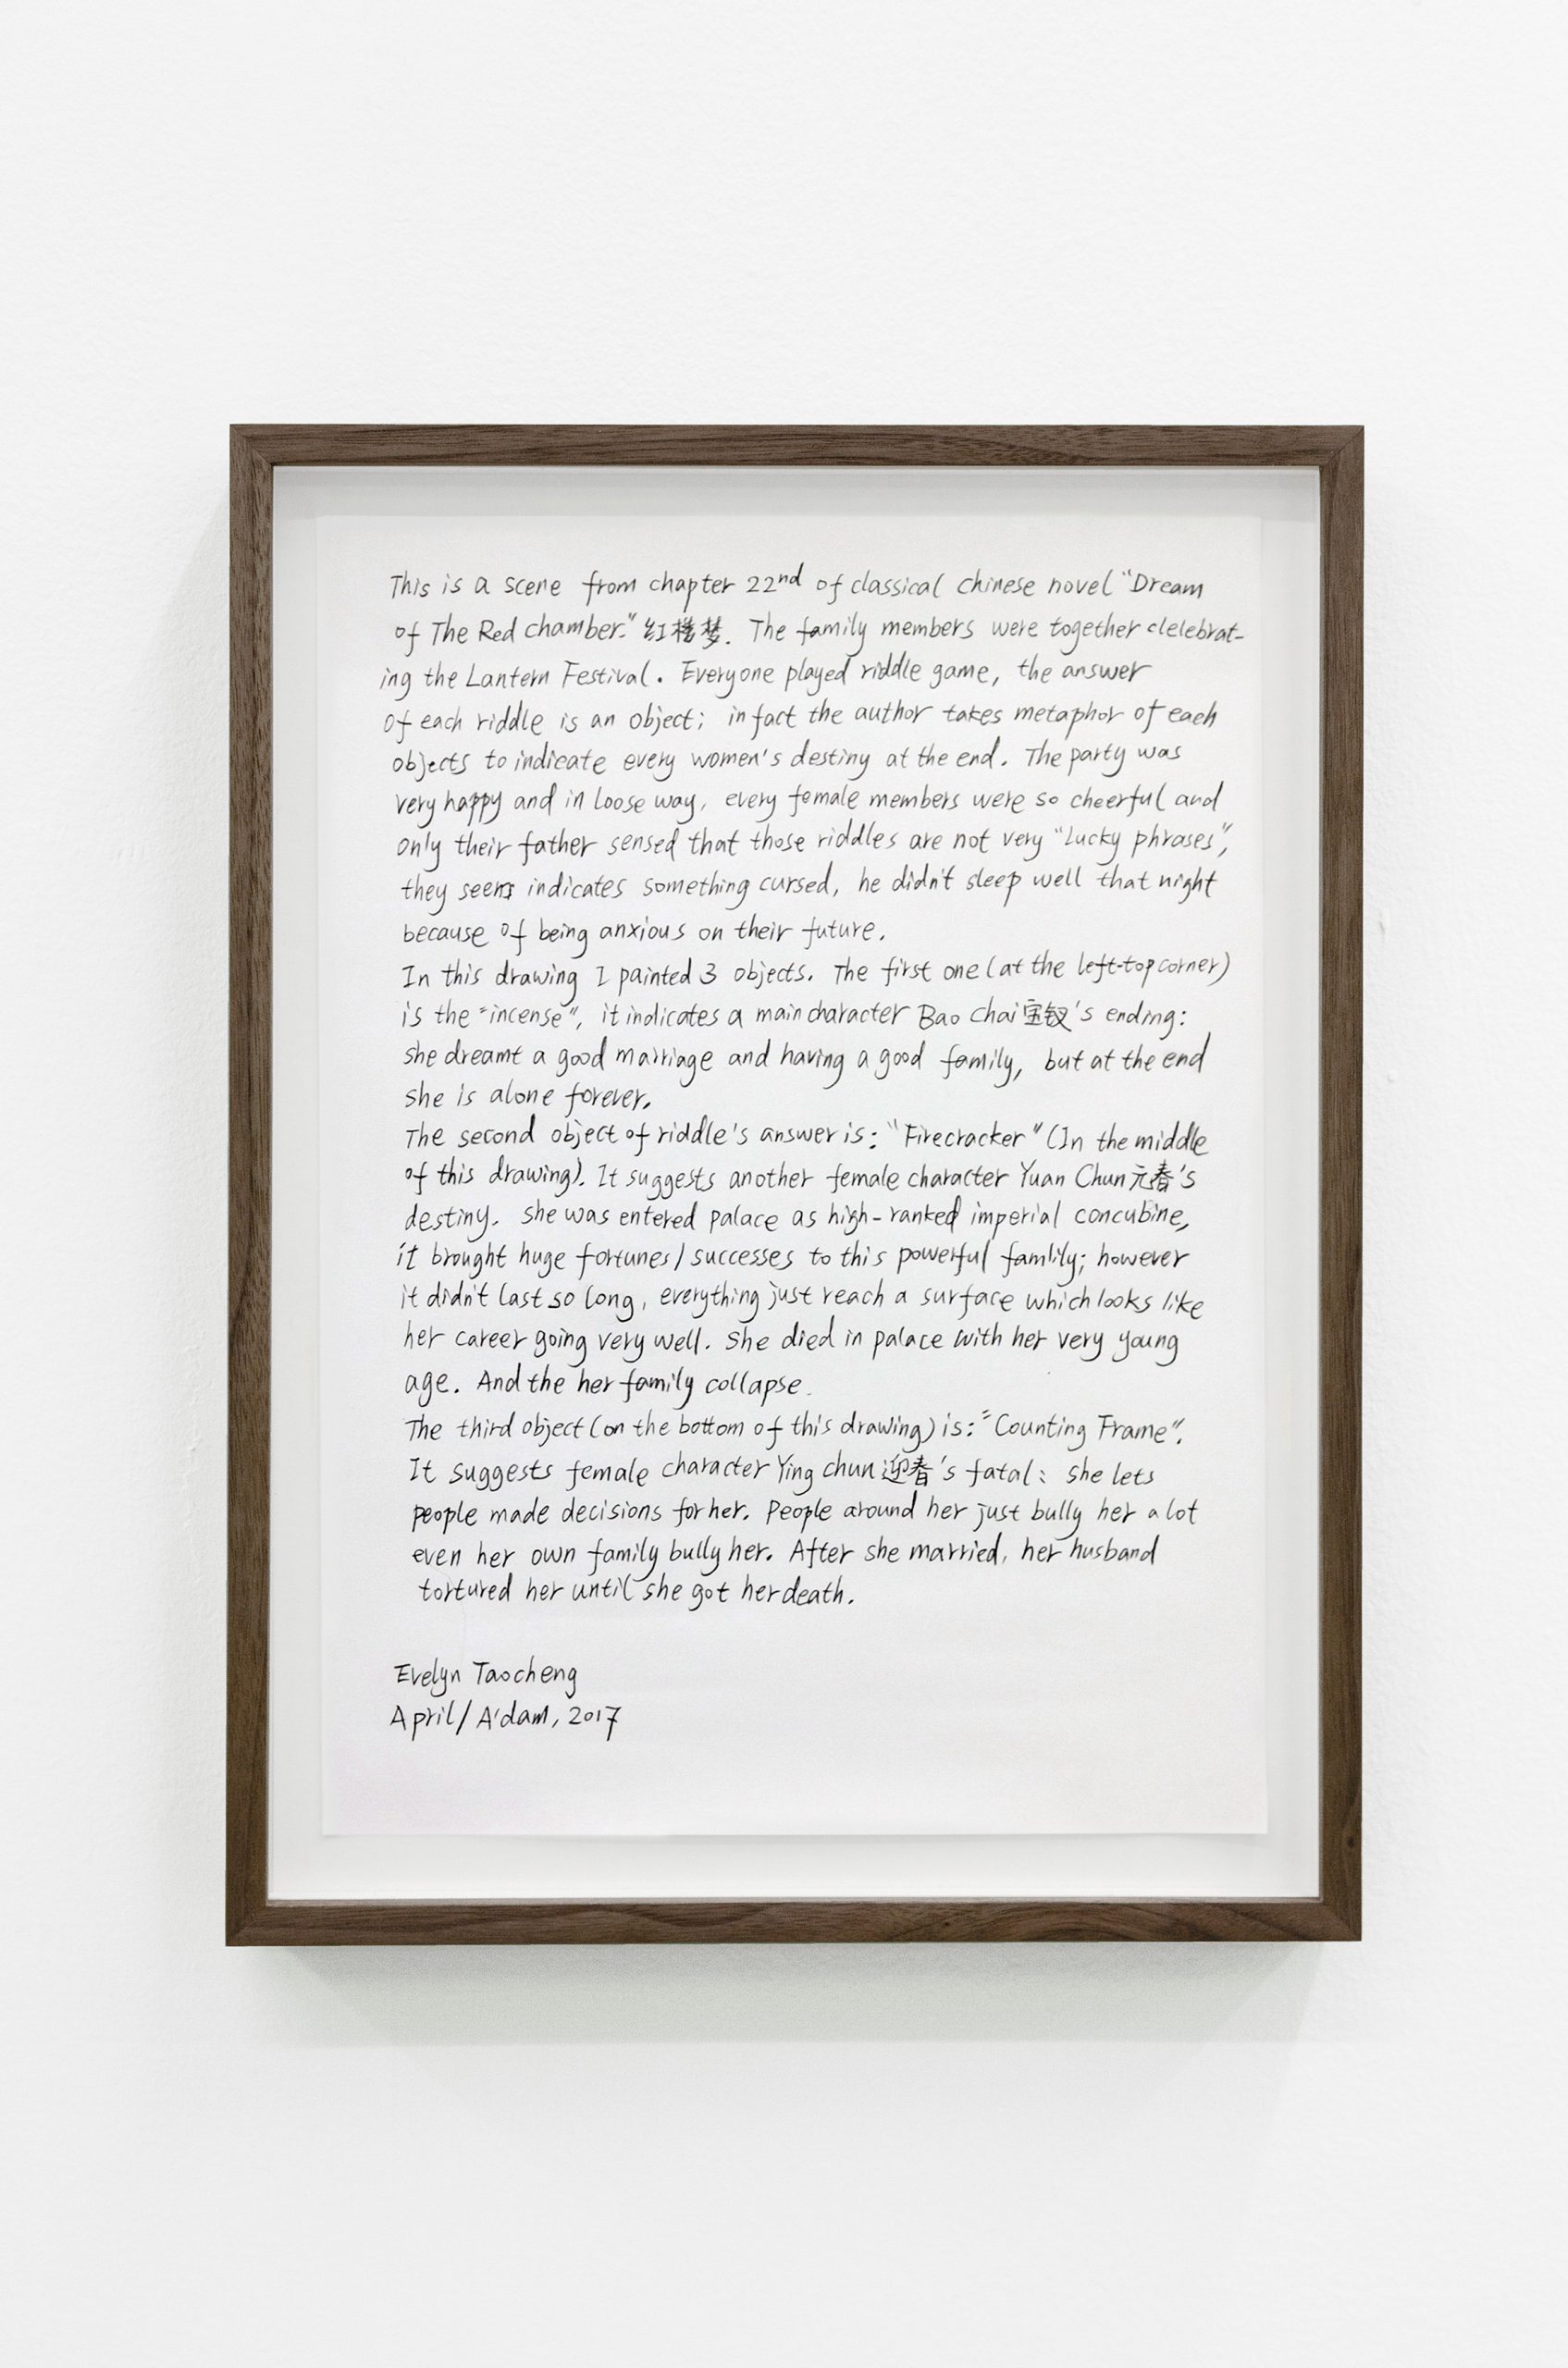 This is a scene from chapter 22nd of classical chinese novel "Dream
of The Red chamber." 红楼梦. The family members were together clelebrat-
ing the Lantern Festival. Everyone played riddle game, the answer
of each riddle is an object; in fact the author takes metaphor of each
objects to indicate every women's destiny at the end. The party was
very happy and in loose way, every female members were so cheerful and
only their father sensed that those riddles are not very "lucky phrases",
they seems indicates something cursed, he didn't sleep well that night
because of being anxious on their future.
In this drawing I painted 3 objects. The first one (at the left-top corner)
is the "incense", it indicates a main character Bao chai 宝钗's ending:
she dreamt a good marriage and having a good family, but at the end
she is alone forever.
The second object of riddle's answer is: "Firecracker" (In the middle
of this drawing). It suggests another female character Yuan Chun 元春's
destiny. she was entered palace as high-ranked imperial concubine,
it brought huge fortunes/successes to this powerful famlily; however
it didn't last so long, everything just reach a surface which looks like
her career going very well. She died in palace with her very young
age. And the her family collapse.
The third object (on the bottom of this drawing) is: "Counting Frame".
It suggests female character Ying chun 迎春's fatal: she lets
people made decisions for her. People around her just bully her a lot
even her own family bully her. After she married, her husband
tortured her until she got her death.
Evelyn Taocheng
April/A'dam, 2017